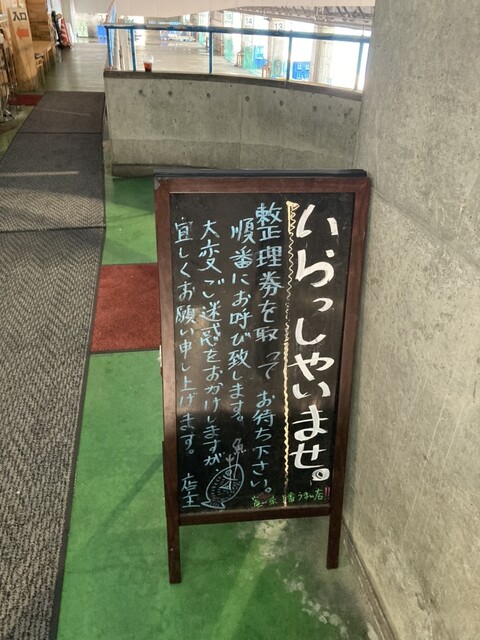 いらっしゃいませ。
整理券を取って お待ち下さい。
順番にお呼び致します。
大変ご迷惑をおかけしますが、
宜しくお願い申し上げます。 店主
入口
14
13